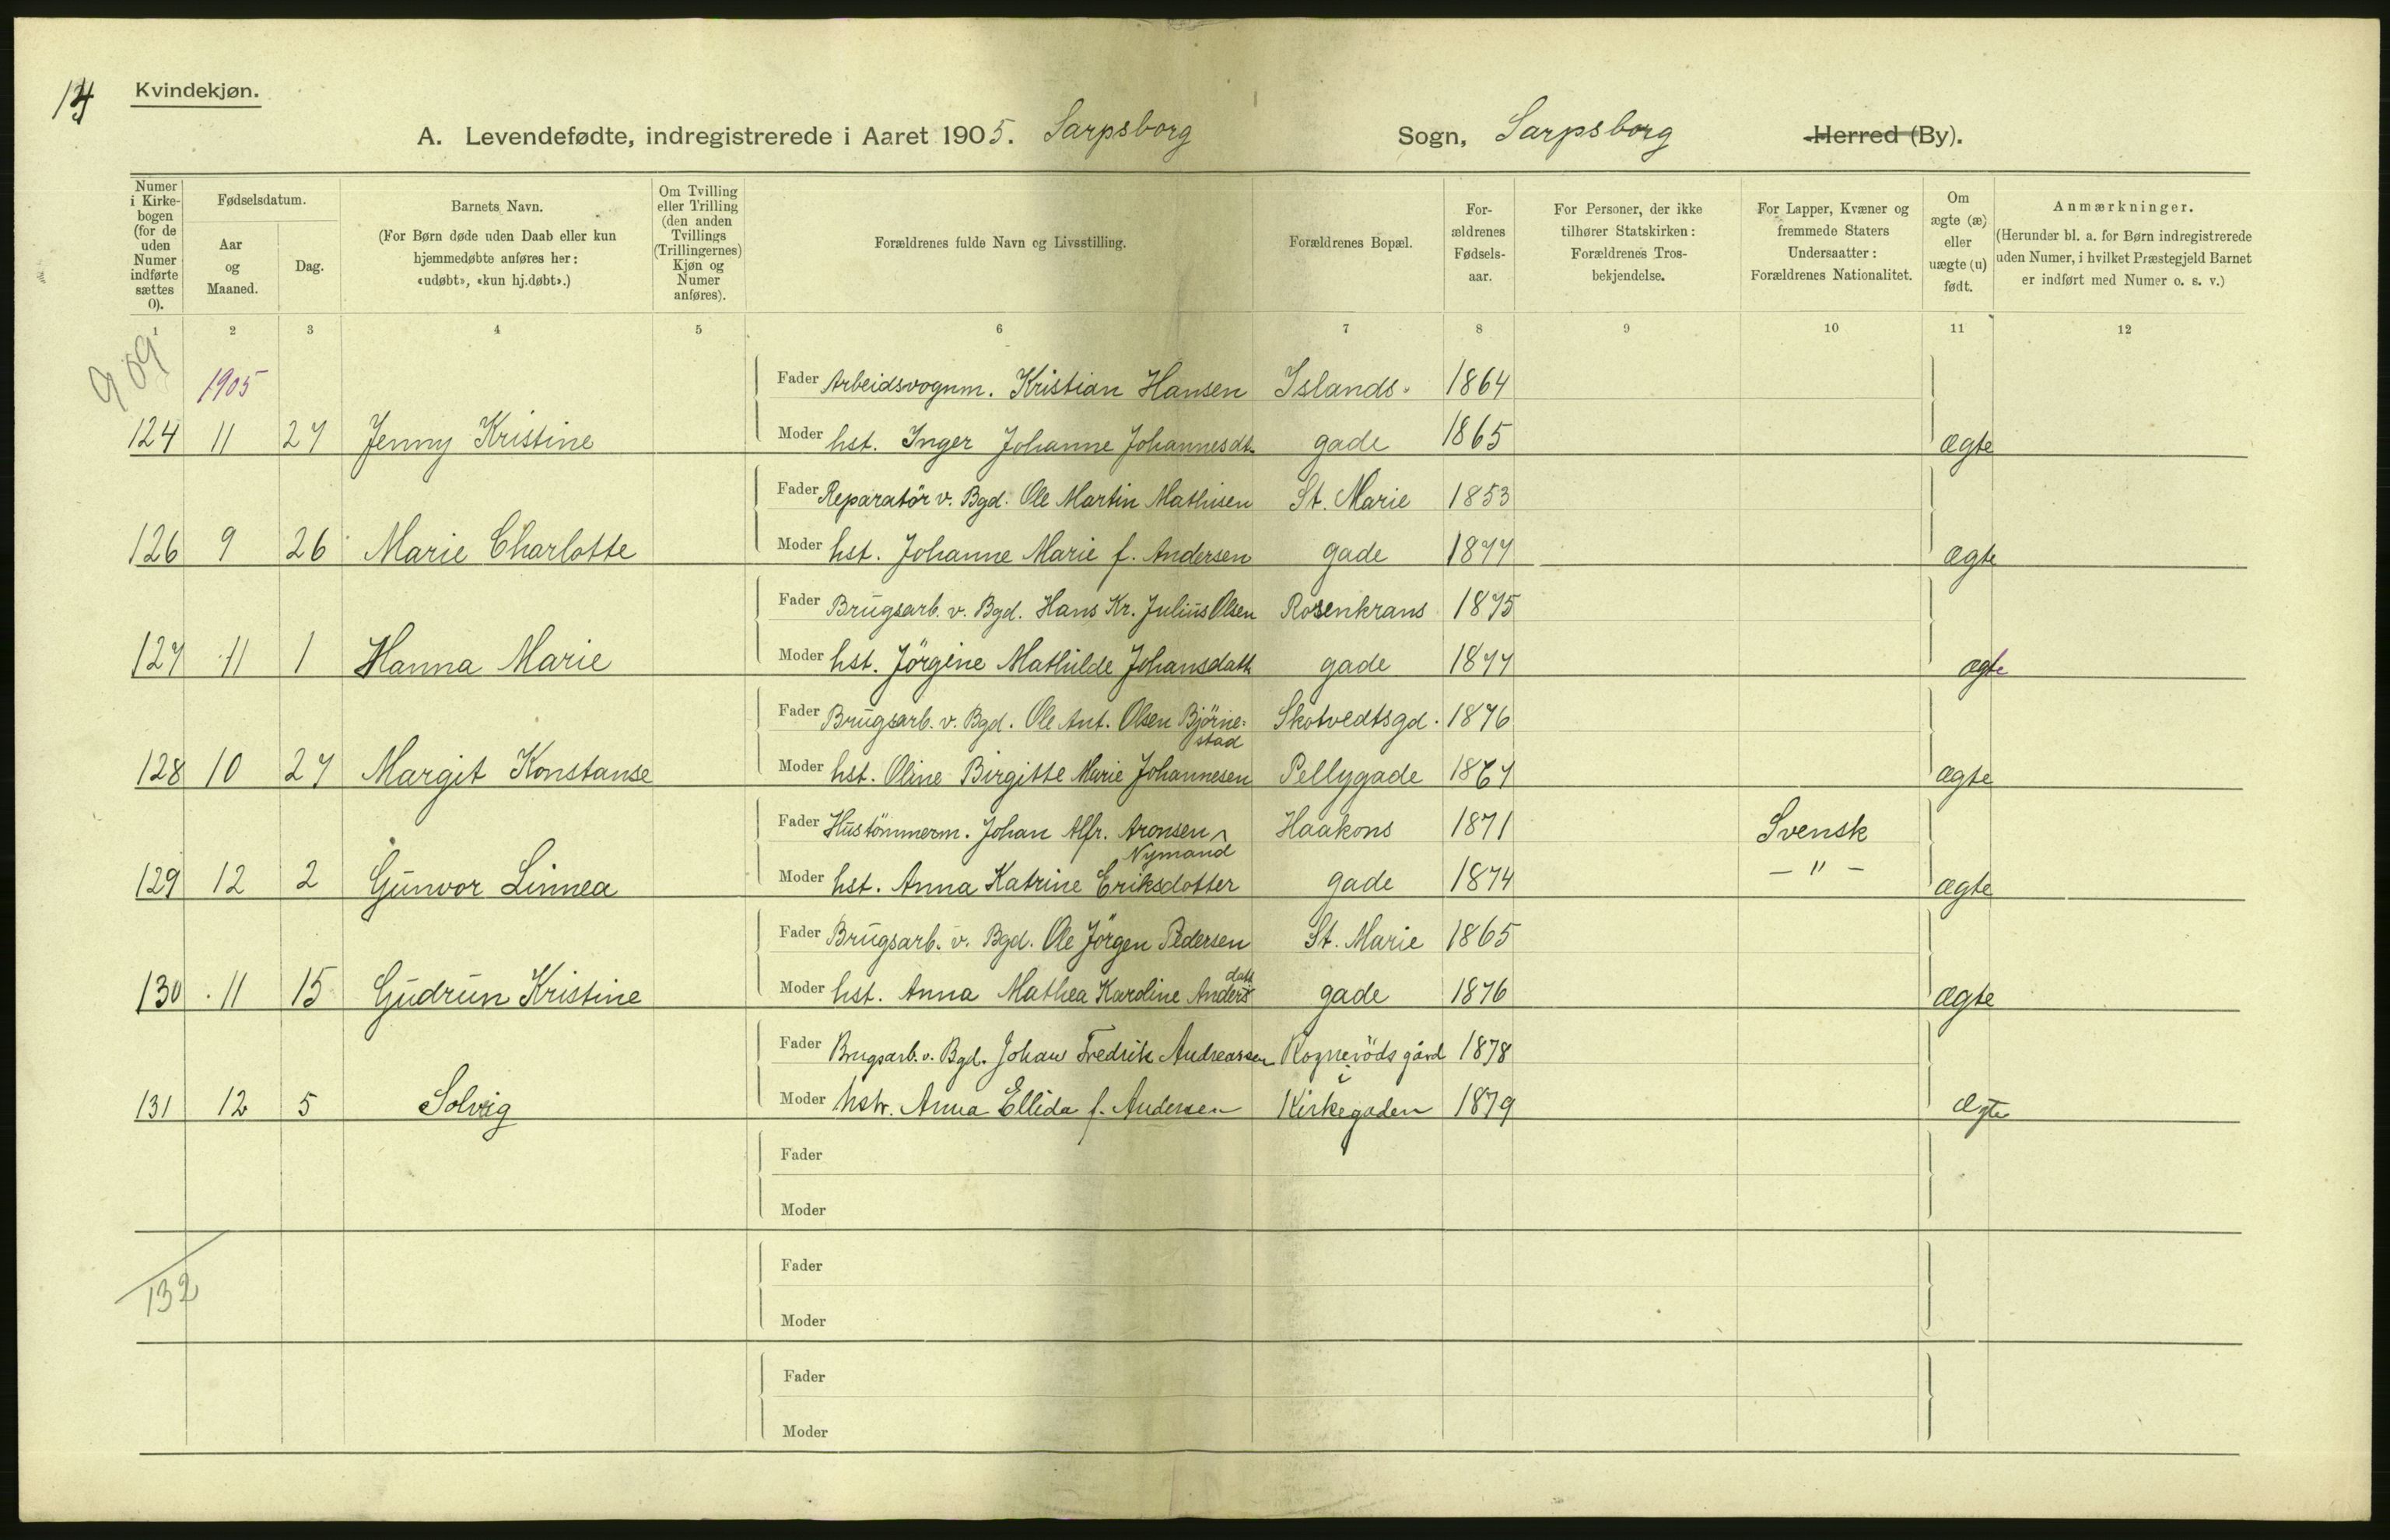 Kvindekjøn.
A. Levendefødte, indregistrerede i Aaret 1905. Sarpsborg Sogn, Sarpsborg Herred (By).
Numer i Kirkebogen (for de uden Numer indførte sættes 0).
Fødselsdatum.
Aar og Maaned.
Dag.
Barnets Navn.
(For Børn døde uden Daab eller kun hjemmedøbte anføres her: «udøbt», «kun hj.døbt».)
Om Tvilling eller Trilling (den anden Tvillings (Trillingernes) Kjøn og Numer anføres).
Forældrenes fulde Navn og Livsstilling.
Forældrenes Bopæl.
For-ældrenes Fødsels-aar.
For Personer, der ikke tilhører Statskirken: Forældrenes Tros-bekjendelse.
For Lapper, Kvæner og fremmede Staters Undersaatter: Forældrenes Nationalitet.
Om ægte (æ) eller uægte (u) født.
Anmærkninger.
(Herunder bl. a. for Børn indregistrerede uden Numer, i hvilket Præstegjeld Barnet er indført med Numer o. s. v.)
1 2 3 4 5 6 7 8 9 10 11 12
909
1905 Fader Arbeidsvognm. Kristian Hansen Islands- 1864
124 11 27 Jenny Kristine Moder hst. Inger Johanne Johannesdt. gade 1865 ægte
Fader Reparatör v. Bgd. Ole Martin Mathisen St. Marie 1853
126 9 26 Marie Charlotte Moder hst. Johanne Marie f. Andersen gade 1877 ægte
Fader Brugsarb. v. Bgd. Hans Kr. Julius Olsen Rosenkrans 1875
127 11 1 Hanna Marie Moder hst. Jörgine Mathilde Johansdatt. gade 1877 ægte
Fader Brugsarb. v. Bgd. Ole Ant. Olsen Björne- Skotvedtsgd. 1876
stad
128 10 27 Margit Konstanse Moder hst. Oline Birgitte Marie Johannesen Pellygade 1867 ægte
Fader Hustömmerm. Johan Alfr. Aronsen Haakons 1871 Svensk
Nymand
129 12 2 Gunvor Linnea Moder hst. Anna Katrine Eriksdotter gade 1874 — " — ægte
Fader Brugsarb. v. Bgd. Ole Jörgen Pedersen St. Marie 1865
datt
130 11 15 Gudrun Kristine Moder hst. Anna Mathea Karoline Anders gade 1876 ægte
Fader Brugsarb. v. Bgd. Johan Fredrik Andreassen gård 1878
i
131 12 5 Solveig Moder hstr. Anna Ellida f. Andersen Kirkegaden 1879 ægte
Fader
Moder
Fader
132
Moder
Fader
Moder